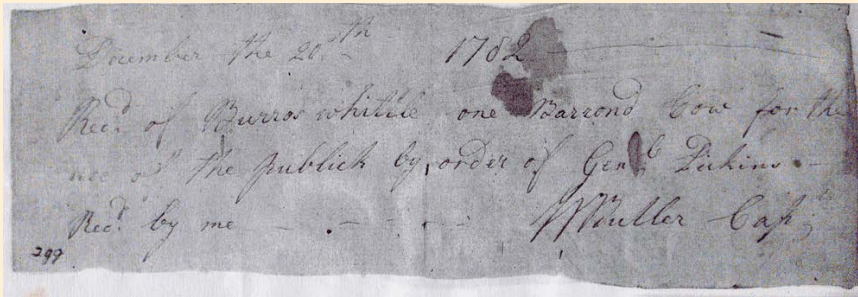 December the 20th 1782
Recd of Burros whittle one Barrond Cow for the
use of the publick by order of Genl Pickins
Recd by me W Butler Capt
299